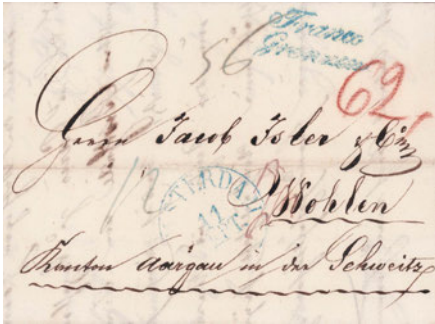 Franco
Grenzen
56
62
Herrn Jacob Isler & Cie
12
STERDA
11
Wohlen
Kanton Aargau in der Schweitz